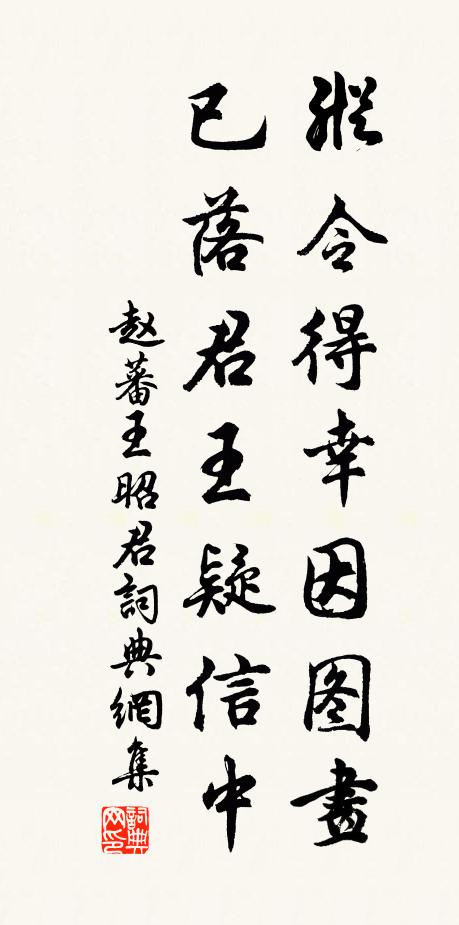 縱令得幸因图畫
已落君王疑信中
赵蕃王昭君詞典網集
詞典网印